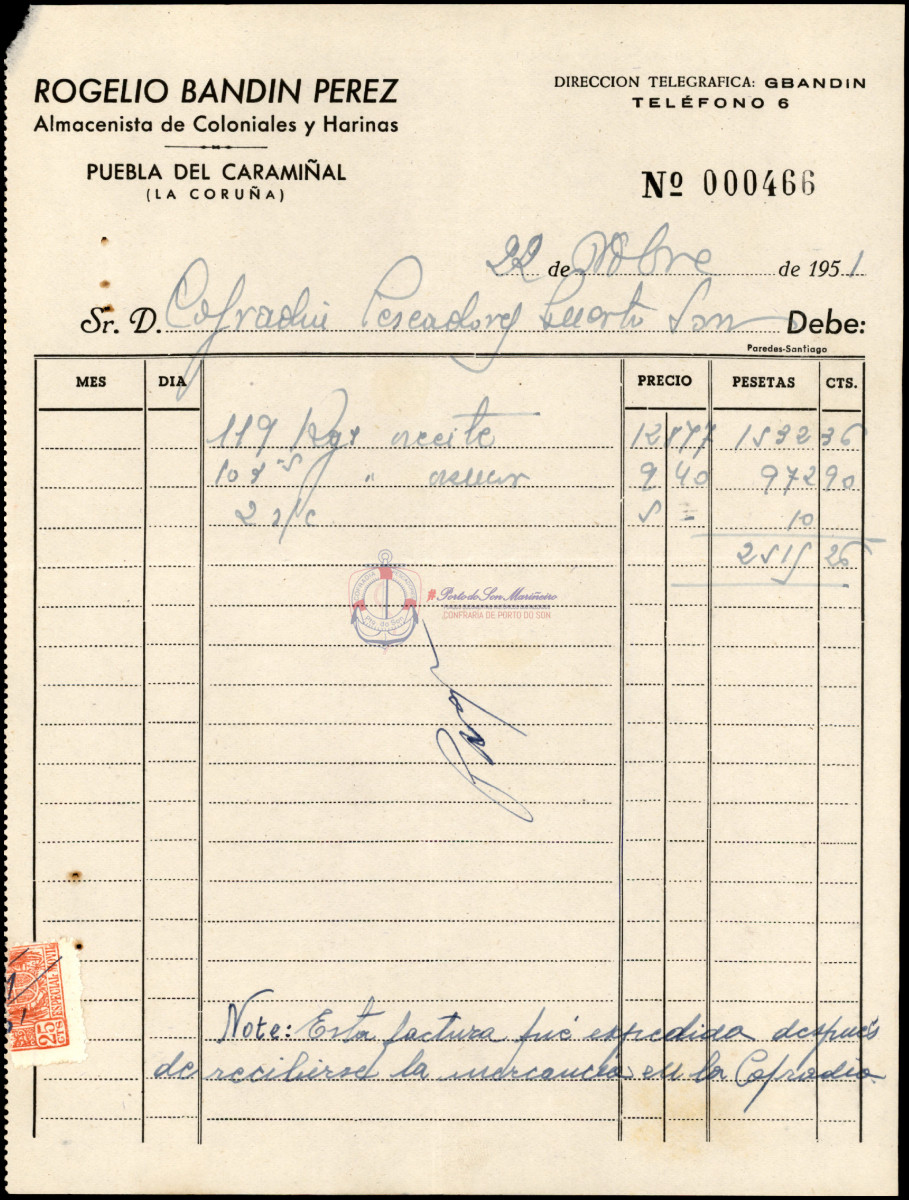 ROGELIO BANDIN PEREZ
Almacenista de Coloniales y Harinas
PUEBLA DEL CARAMIÑAL
(LA CORUÑA)
DIRECCION TELEGRAFICA: GBANDIN
TELÉFONO 6
Nº 000466
22 de Obre de 1951
Sr. D. Cofradia Pescadores Puerto Son Debe:
Paredes-Santiago
MES DIA PRECIO PESETAS CTS.
119 Kgs aceite 12 877 1532 36
103 5 " asucar 9 40 972 90
2 s/c 5 = 10
2515 26
COFRADIA PESCADORES
Pto. do Son
#Porto do Son Mariñeiro
CONFRARÍA DE PORTO DO SON
25 CTS ESPECIAL MOVIL
Nota: Esta factura fué expedida después
de recibirse la mercancía en la Cofradía